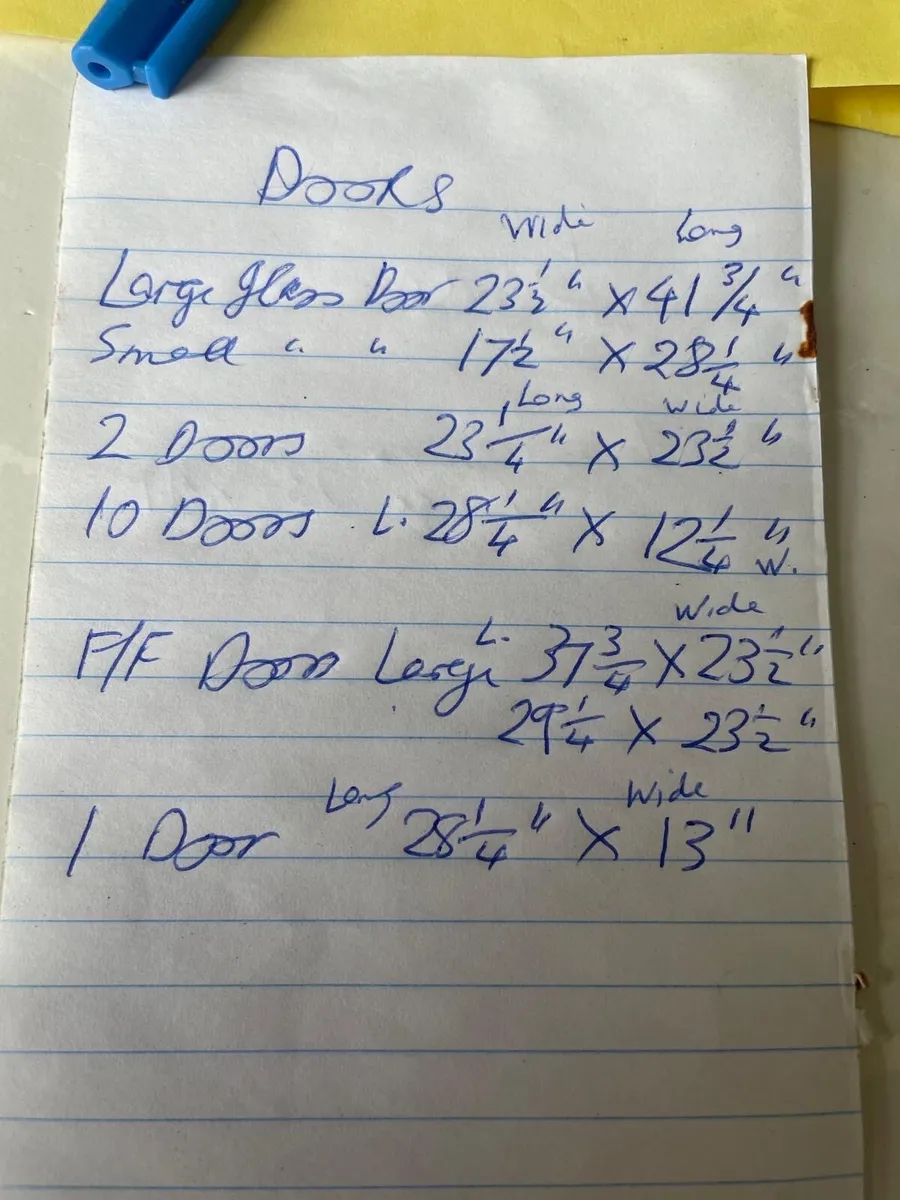 Doors
Wide Long
Large glass Door 23 1/2" X 41 3/4"
Small " " 17 1/2" X 28 1/4"
Long Wide
2 Doors 23 1/4" X 23 1/2"
10 Doors L. 28 1/4" X 12 1/4"
W.
Wide
F/F Doors Large L. 37 3/4 X 23 1/2"
29 1/4 X 23 1/2"
Long Wide
1 Door 28 1/4" X 13"